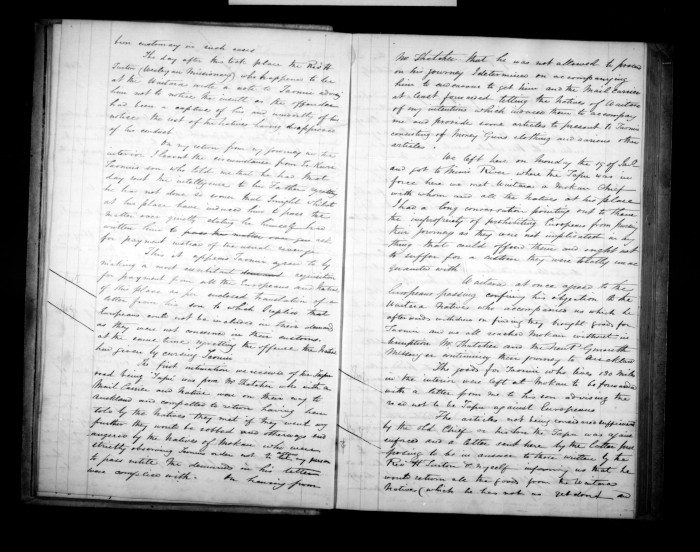 been customary in such cases
The day after this took place the Revd H
(Wesleyan Missionary) who happened to be
at the Waitara wrote a note to Taonui
him not to notice the insult as the offender
had been a captive of his and unworthy of his
notice the rest of the Natives having disapproved
of his conduct
On my return from my journey in the
interior I learnt the circumstance from Te Kuri
Taonui's son who told me that he had that
day sent the intelligence to his Father
he has not done it sooner that I might whilst
at his place have induced him to pass the
matter over quietly stating he himself had
written him to pass the matter over and ask
for payment instead of the usual revenge
This it appears Taonui agreed to by
making a most exorbitant requisition
for payment from all the Europeans and Natives
of this place as per enclosed translation of a
letter from his son to which I replied that
Europeans could not be included in their demand
as they were not concerned in their customs
at the same time regretting the offence the Native
had given by cursing Taonui
The first intimation we received of the
road being Tapu was from Mr Thatcher who with a
Mail Carrier and Native were on their way to
Auckland and compelled to return having been
told by the Natives they met if they went any
further they would be robbed and otherways
injured by the Natives of Mokau who were
strictly observing Taonui's orders not to let any person
to pass until the demands in his letter
were complied with. On hearing from
Mr Thatcher that he was not allowed to proceed
on his journey I determined on accompanying
him to endeavour to get him and the Mail Carrier
at least forwarded telling the Natives of Waitara
of my intentions which induced them to accompany
me and provide some articles to present to Taonui
consisting of Money Guns clothing and various other
articles.
We left here on Monday the 17 of
and got to River where the Tapu was in
force here we met Waitara a Mokau Chief
with whom and all the Natives at his place
I had a long conversation pointing out to them
the impropriety of prohibiting Europeans from
their journeys as they were not implicated in any
thing that could offend them and ought not
to suffer for a custom they were totally unac
quainted with
Waitara at once agreed to the
Europeans passing confining his objection to the
Waitara Natives who accompanied us which he
afterwards withdrew on finding they brought goods for
Taonui and we all reached Mokau without in
terruption Mr Thatcher and the New Plymouth
Messenger continuing their journey to Auckland
The goods for Taonui who lives 130 miles
in the interior were left at Mokau to be forwarded
with a letter from me to his son advising the
road not to be Tapu against Europeans
The articles not being considered sufficient
by the Old Chief on his side the Tapu was again
enforced and a letter sent here by the Cattle
posing to be in answer to those written by the
Revd H and myself informing us that he
would return all the goods from the Waitara
Natives (which he has not as yet done) and